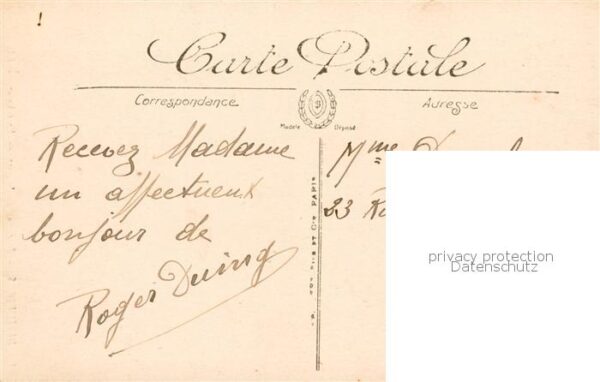 !
Carte Postale
Correspondance
Adresse
Modèle Déposé
Recevez Madame
un affectueux
bonjour de
Roger
Mme
23
privacy protection
Datenschutz